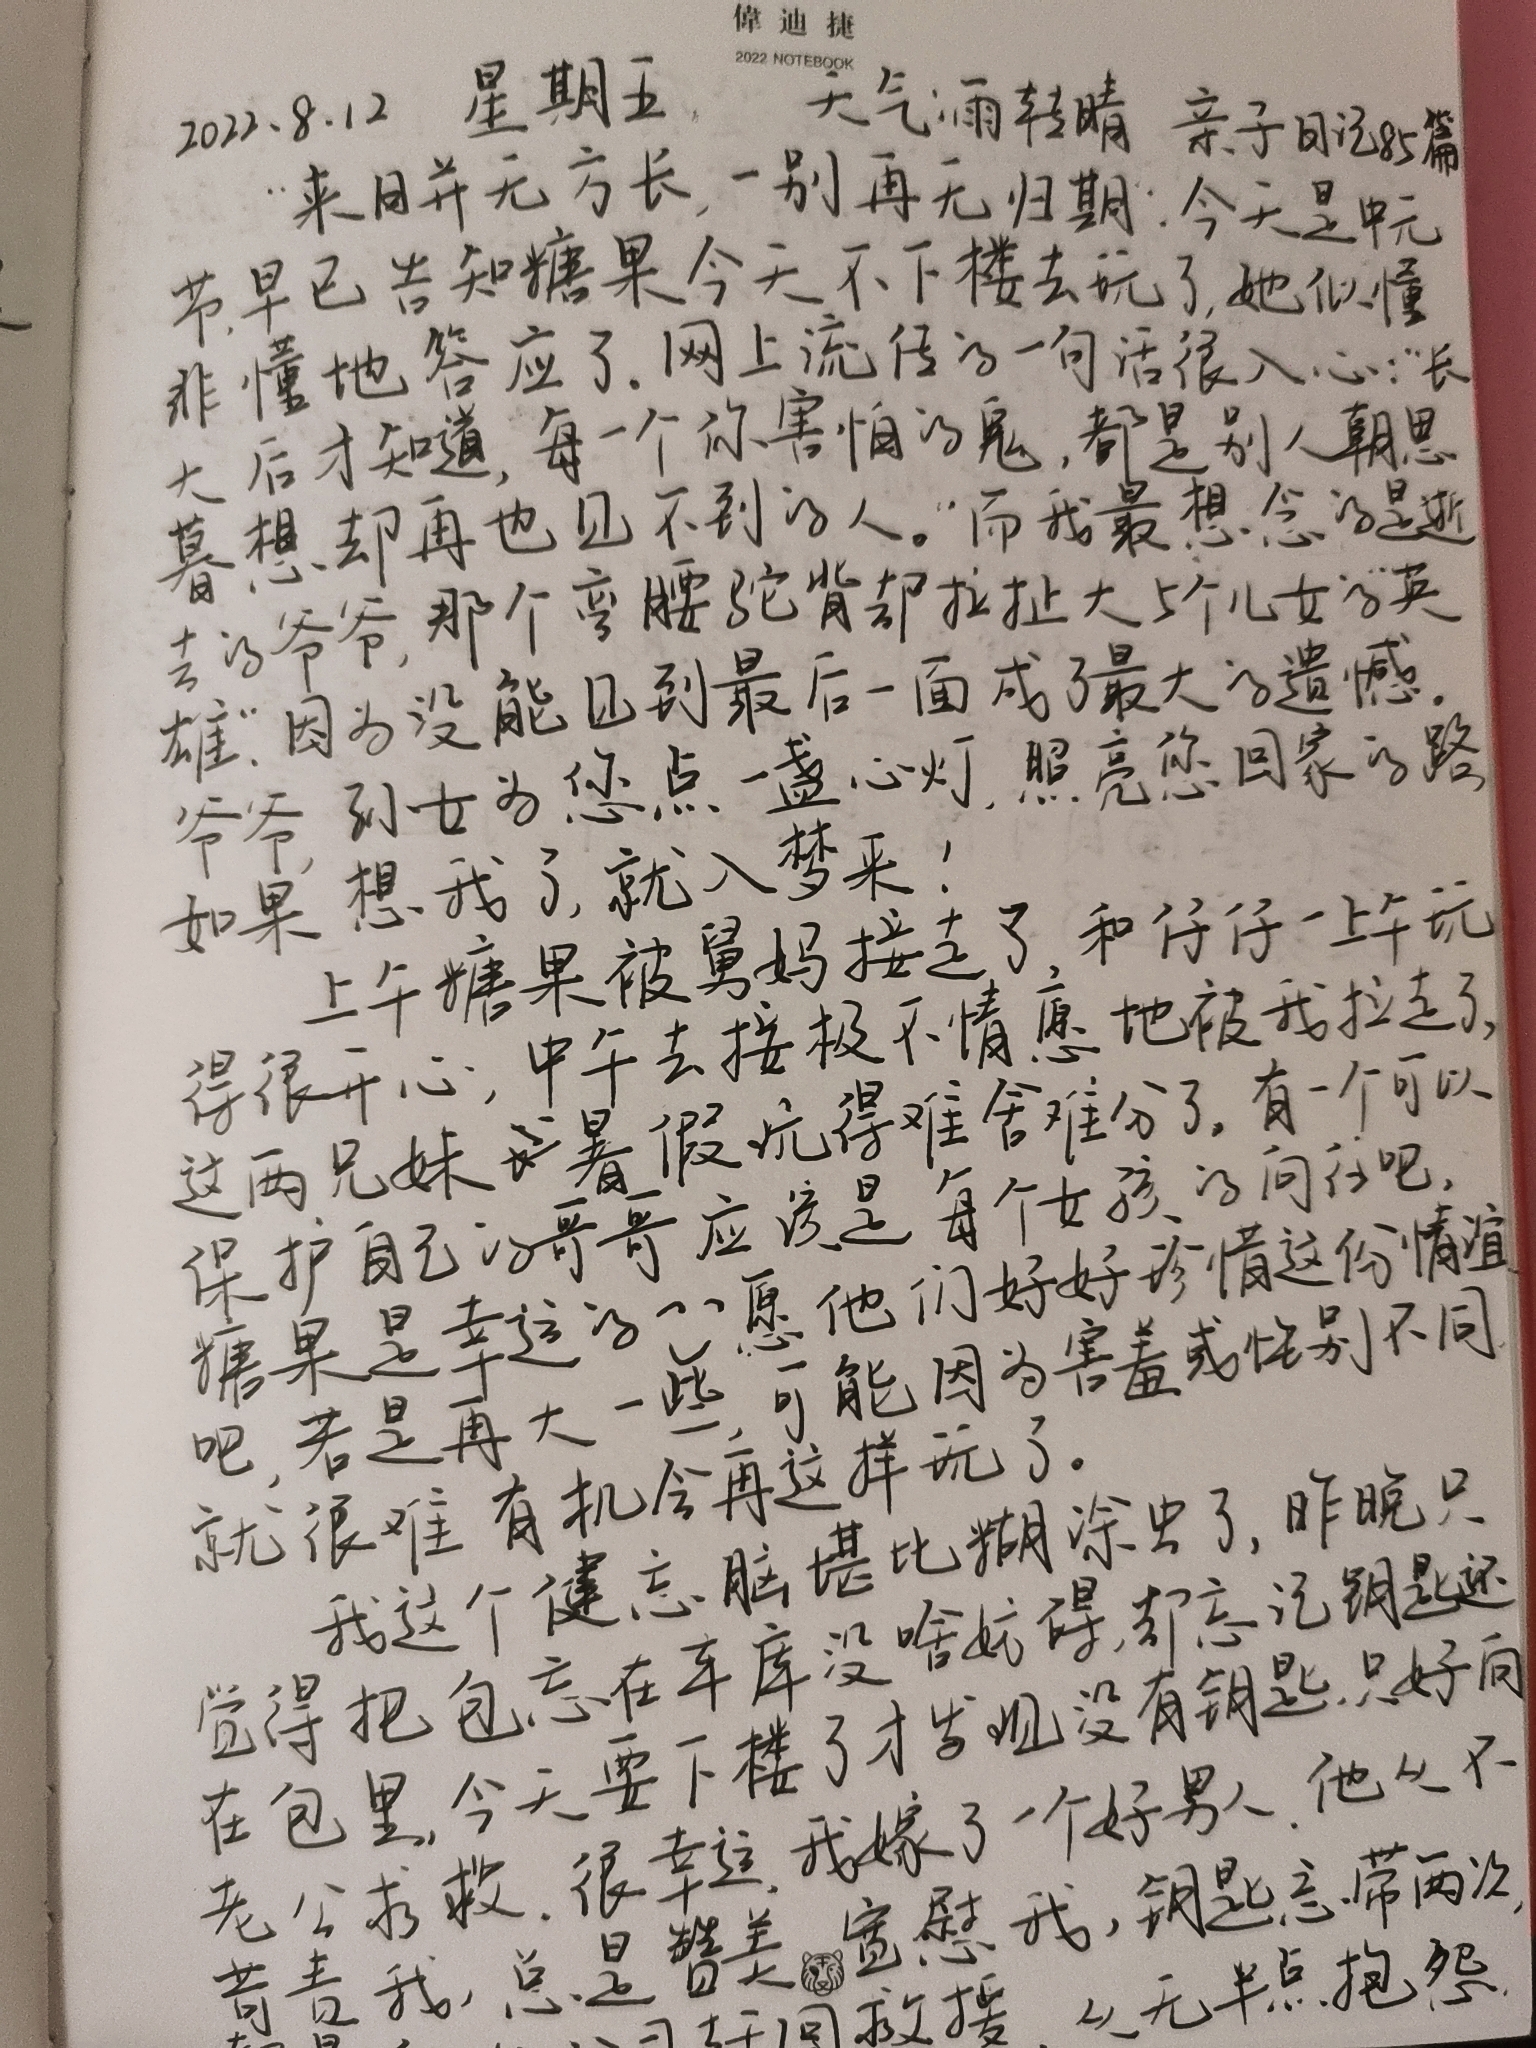 偉迪捷
2022 NOTEBOOK
2022.8.12 星期五 天气:雨转晴 亲子日记85篇
"来日并无方长,一别再无归期".今天是中元
节,早已告知糖果今天不下楼去玩了,她似懂
非懂地答应了。网上流传的一句话很入心:"长
大后才知道,每一个你害怕的鬼,都是别人朝思
暮想却再也见不到的人。"而我最想念的是逝
去的爷爷,那个弯腰驼背却拉扯大5个儿女的"英
雄".因为没能见到最后一面成了最大的遗憾.
爷爷,孙女为您点一盏心灯,照亮您回家的路,
如果想我了,就入梦来!
上午糖果被舅妈接走了,和仔仔一上午玩
得很开心,中午去接极不情愿地被我拉走了,
这两兄妹 暑假玩得难舍难分了。有一个可以
保护自己的哥哥应该是每个女孩的向往吧.
糖果是幸运的 愿他们好好珍惜这份情谊
吧,若是再大一些,可能因为害羞或性别不同
就很难有机会再这样玩了。
我这个健忘脑堪比糊涂虫了,昨晚只
觉得把包忘在车库没啥妨碍,却忘记钥匙还
在包里,今天要下楼了才发现没有钥匙,只好向
老公求救.很幸运,我嫁了一个好男人.他从不
苛责我,总是赞美 宽慰我,钥匙忘带两次,
赶回救援,从无半点抱怨.